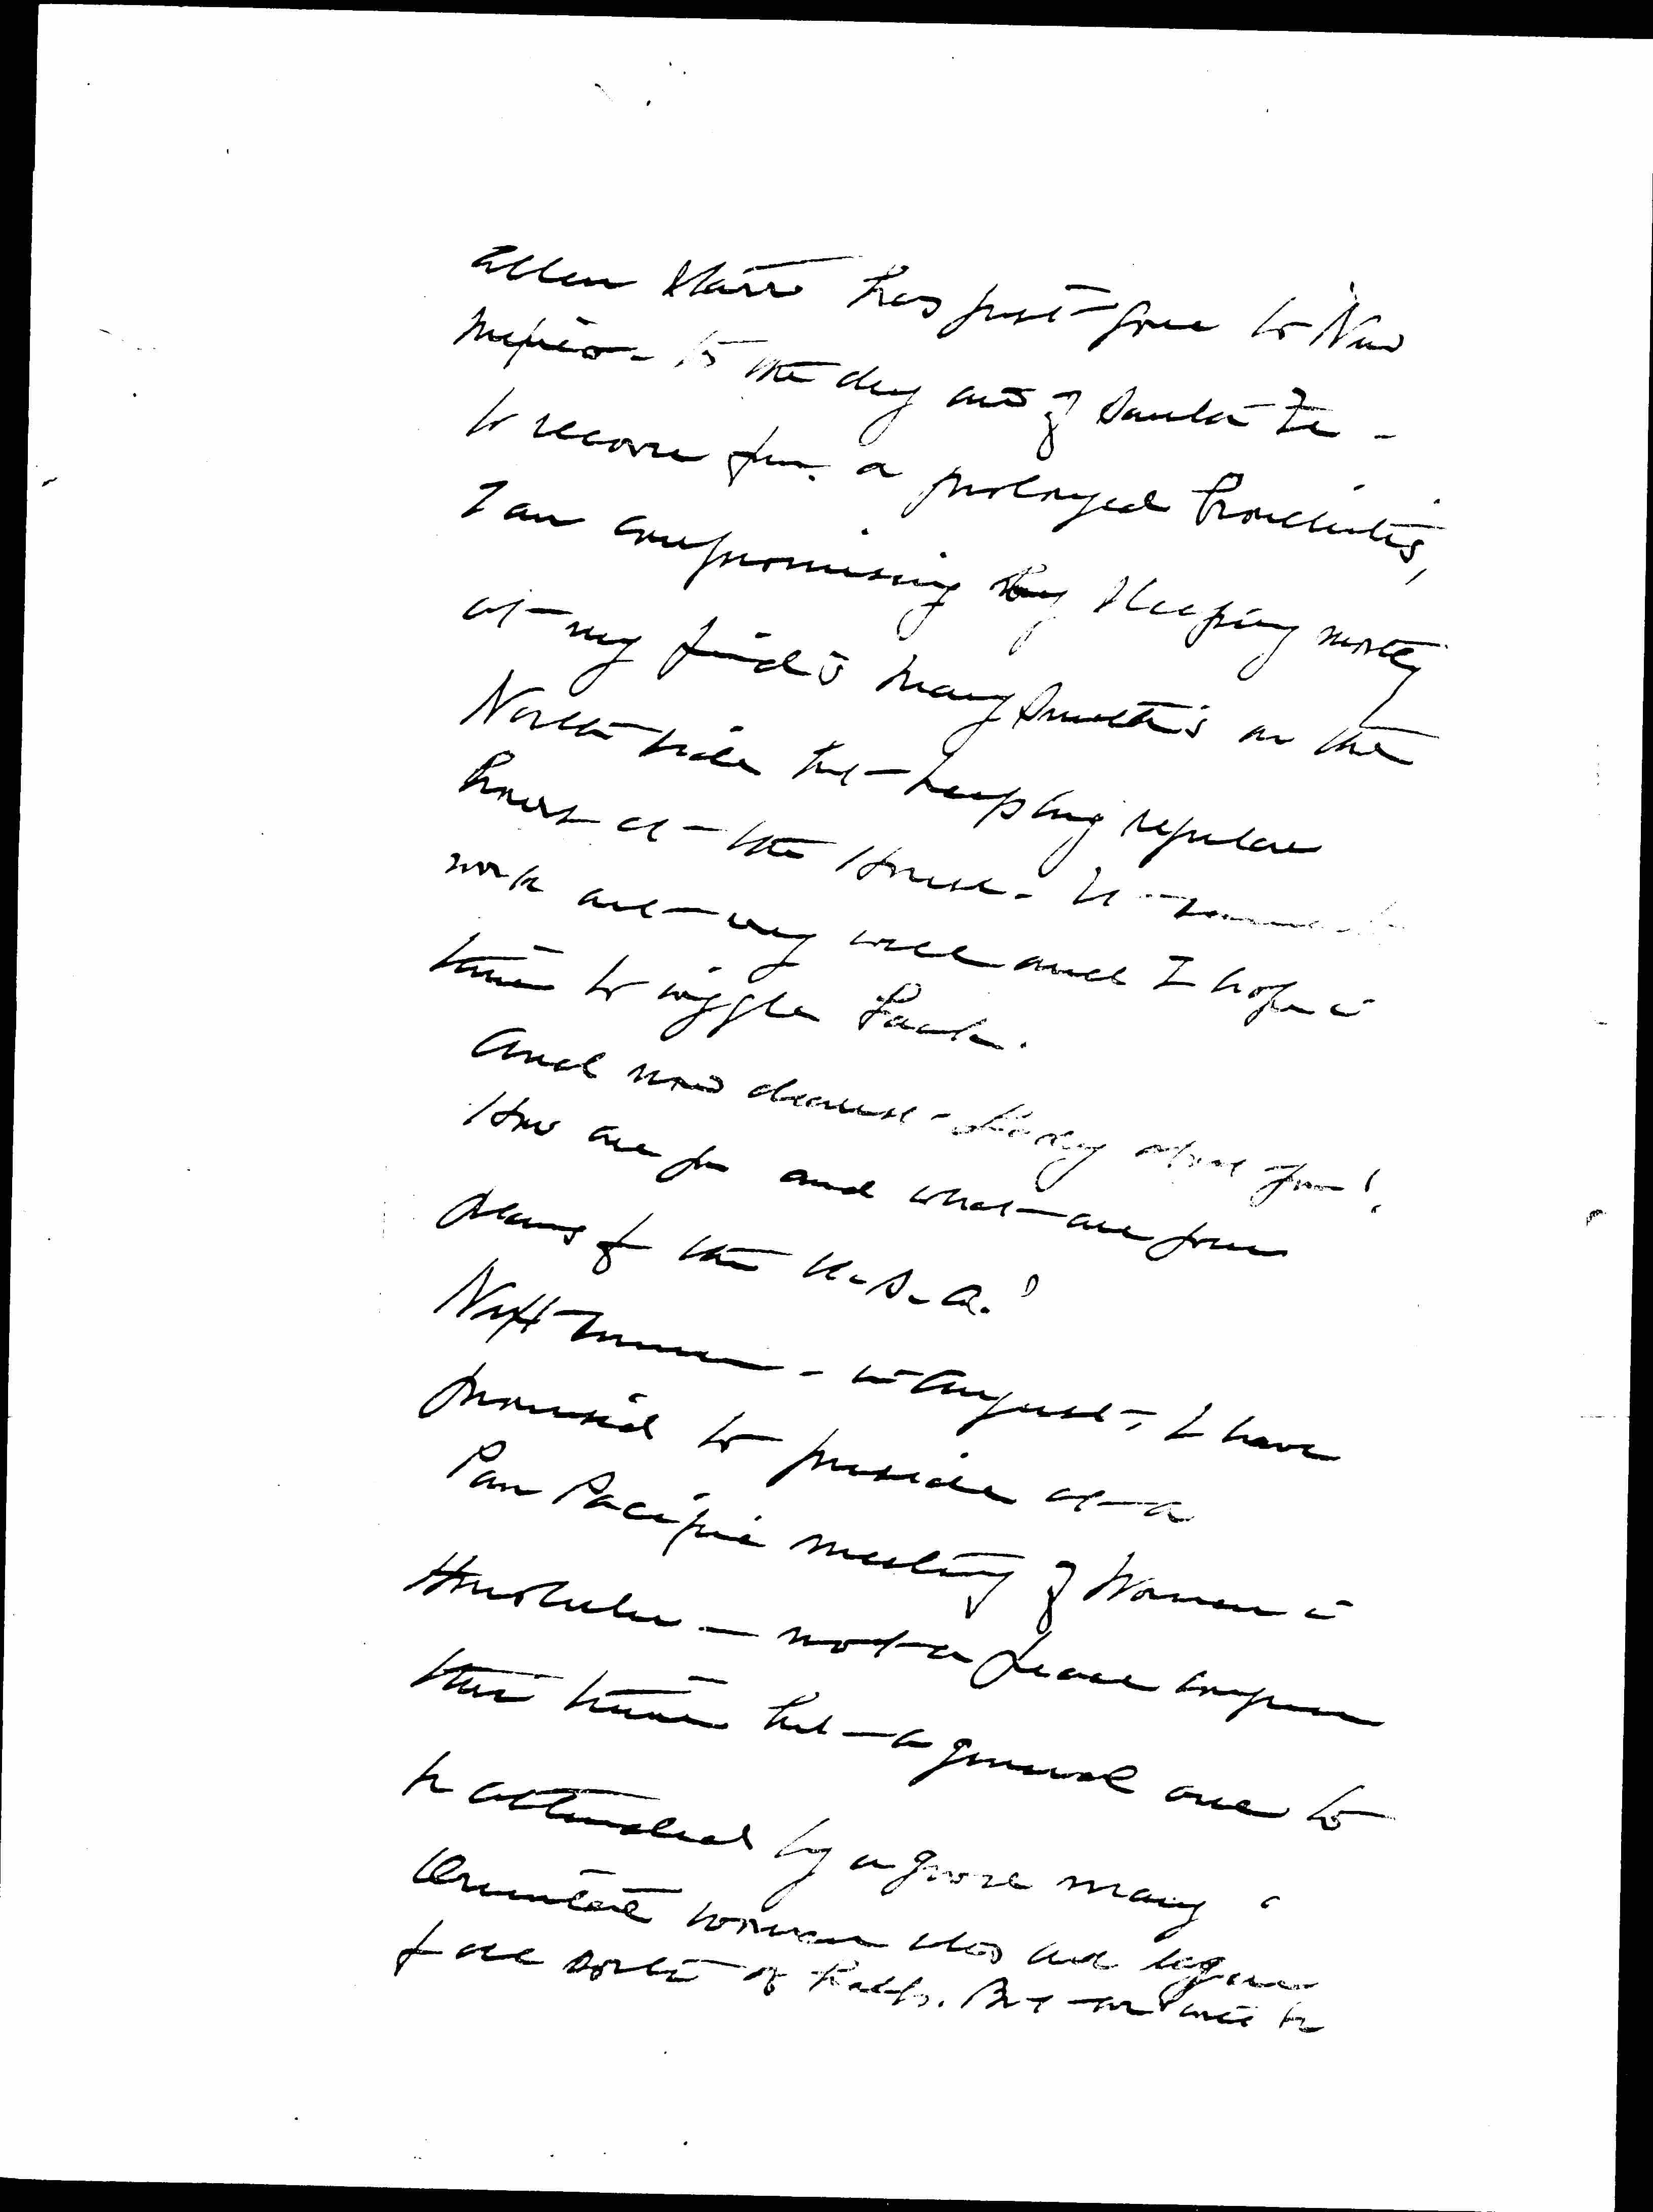 Ellen Starr has just gone to New
Mexico - to the dry air of Santa Fe -
to recover from a prolonged bronchitis,
I am compromising by sleeping mostly
at my friend's Mary Smith's on the
North side but keeping regular
hours at the House. It seems to
work out very well and I hope in
time to wiggle back.
And now dearest Lady about you!
How are you and what are your
plans for the U.S.A.?
Next summer - in August, I have
promised to preside at a
Pan Pacific meeting of Women in
Honolulu - not a peace congress
this time but a general one to
be attended by a good many
Oriental women who are eager
for all sorts of help. But we will be